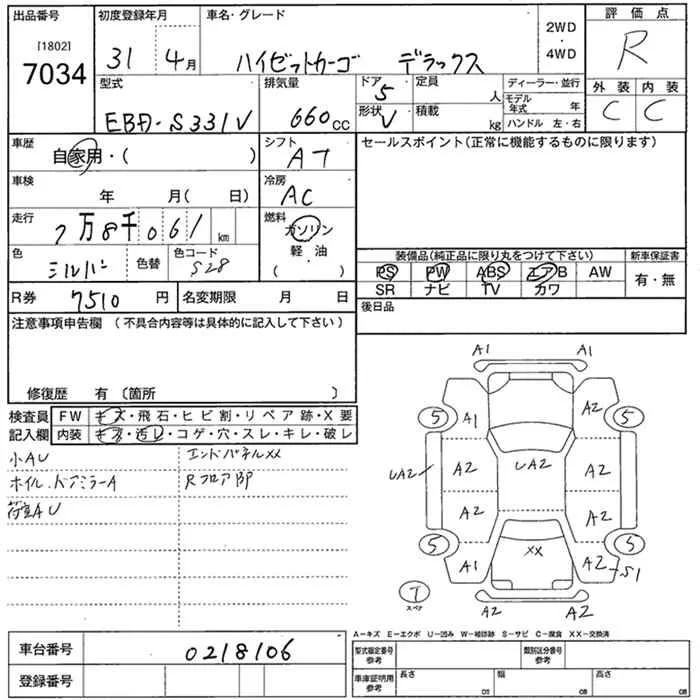 出品番号 初度登録年月 車名・グレード 評価点
[1802] 7034 31 4月 ハイゼットカーゴ デラックス 2WD・4WD R
型式 排気量 ドア 5 定員 人 ディーラー・並行 外装 内装
EBD-S331V 660cc 形状 V 積載 kg モデル年式 年 C C
ハンドル 左・右
車歴 自家用・( ) シフト AT セールスポイント(正常に機能するものに限ります)
車検 年 月( 日) 冷房 AC
走行 7万8千061km 燃料 ガソリン
軽・油
・( )
色 シルバー 色替 色コード S28
装備品(純正品に限り丸をつけて下さい) 新車保証書
PS PW ABS エアB AW 有・無
SR ナビ TV カワ
R券 7510円 名変期限 月 日 後日品
注意事項申告欄 (不具合内容等は具体的に記入して下さい)
修復歴 有 (箇所 )
検査員 FW キズ・飛石・ヒビ割・リペア跡・X要
記入欄 内装 キズ・汚レ・コゲ・穴・スレ・キレ・破レ
小AU エンドパネルXX
ホイル.ドアミラーA Rフロア部
荷室AU
A1 A1
5 A1 A2 5
UA2 A2 UA2 A2
A2 A2
5 A1 XX A2 S1 5
T スペア
A2 A2
A-キズ E-エクボ U-凹み W-補修跡 S-サビ C-腐食 XX-交換済
車台番号 0218106 型式指定番号 参考 類別区分番号 参考
登録番号 車庫証明用 参考 長さ 07 幅 08 高さ 08